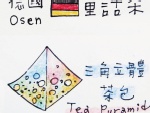 德國
Osen
三角立體
茶包
Tea Pyramid